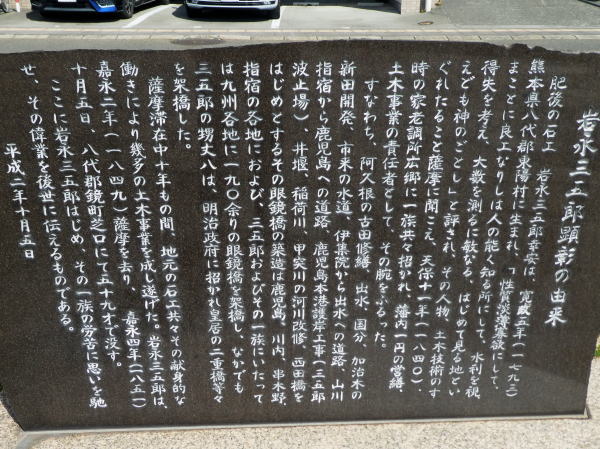 岩永三五郎顕彰の由来
肥後の石工 岩永三五郎幸安は、寛政五年(一七九三)
熊本県八代郡東陽村に生まれ、「性質淡薄寡欲にして、
まことに良工なりしは人の能く知る所にして、水利を視、
得失を考え、大数を測るに敏なる、はじめて見る地とい
えども神のごとし」と評され、その人物、土木技術のす
ぐれたること薩摩に聞こえ、天保十一年(一八四〇)、
時の家老調所広郷に一族共々招かれ、藩内一円の営繕、
土木事業の責任者として、その腕をふるった。
すなわち、阿久根の古田修繕、出水、国分、加治木の
新田開発、市来の水道、伊集院から出水への道路、山川
指宿から鹿児島への道路、鹿児島本港護岸工事(三五郎
波止場)、井堰、稲荷川、甲突川の河川改修、西田橋を
はじめとするその眼鏡橋の築造は鹿児島、川内、串木野、
指宿の各地におよび、三五郎およびその一族にいたって
は九州各地に一九〇余りの眼鏡橋を架橋し、なかでも
三五郎の甥丈八は、明治政府に招かれ皇居の二重橋等々
を架橋した。
薩摩滞在中十年もの間、地元の石工共々その献身的な
働きにより幾多の土木事業を成し遂げた。岩永三五郎は、
嘉永二年(一八四九)薩摩を去り、嘉永四年(一八五一)
十月五日、八代郡鏡町芝口にて五十九才で没す。
ここに岩永三五郎はじめ、その一族の労苦に思いを馳
せ、その偉業を後世に伝えるものである。
平成二年十月五日